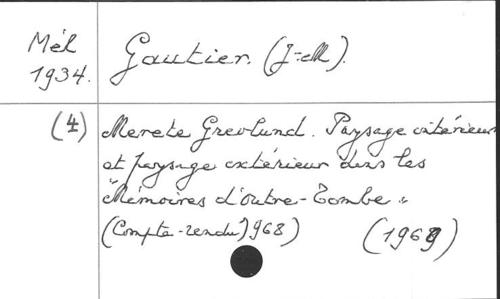 Mél
1934.
Gautier. (J-M).
(4)
Merete Grevlund. Paysage extérieur
et paysage extérieur dans les
"Mémoires d'Outre-Tombe"
(Compte-rendu) 968)
(1969)